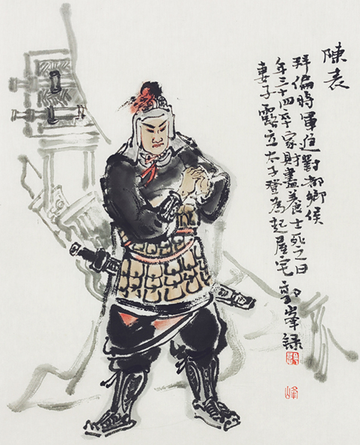 陳表
拜偏將軍進封都鄉侯
年三十四卒家財盡養士死之日
妻子露立太子登為起屋宅 錄
峰